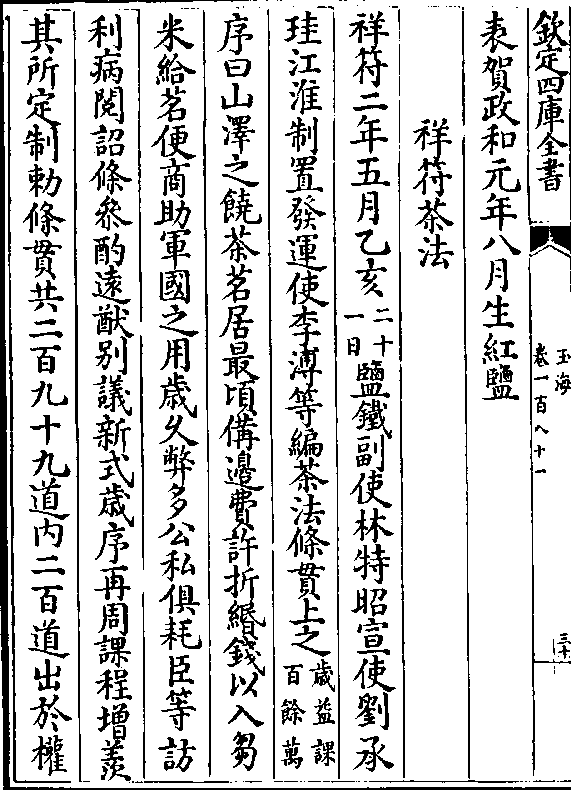 欽定四庫全書
玉海
卷一百八十一
三十
表賀政和元年八月生紅鹽
祥符茶法
祥符二年五月乙亥二十一日鹽鐵副使林特昭宣使劉承
珪江淮制置發運使李溥等編茶法條貫上之歲益課百餘萬
序曰山澤之饒茶茗居最頃備邊費許折緡錢以入芻
米給茗便商助軍國之用歲久弊多公私俱耗臣等訪
利病閱詔條叅酌遠猷别議新式歲序再周課程增羨
其所定制勅條貫共二百九十九道内二百道出於權